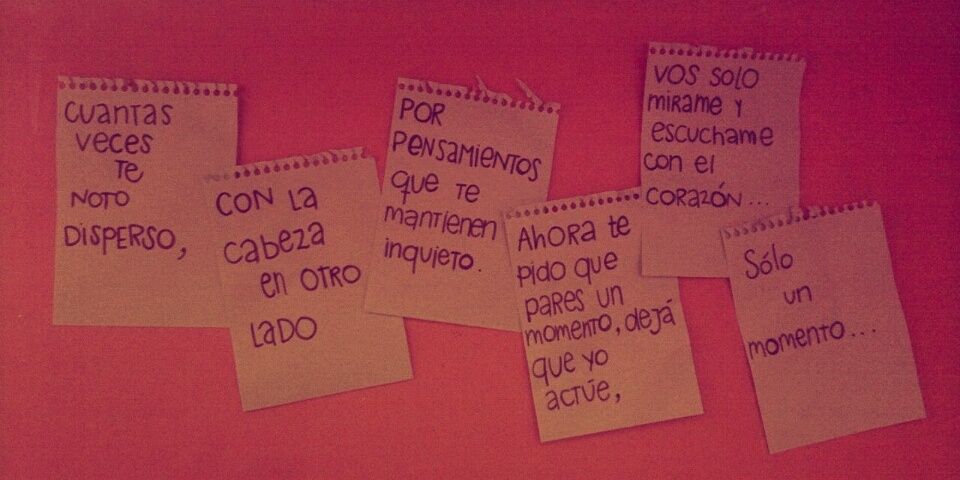 CUANTAS
VECES
TE
NOTO
DISPERSO,
CON LA
CABEZA
EN OTRO
LADO
POR
PENSAMIENTOS
QUE TE
MANTIENEN
INQUIETO.
AHORA TE
PIDO QUE
PARES UN
MOMENTO, DEJÁ
QUE YO
ACTÚE,
VOS SOLO
MIRAME Y
ESCUCHAME
CON EL
CORAZÓN...
SÓLO
UN
MOMENTO...